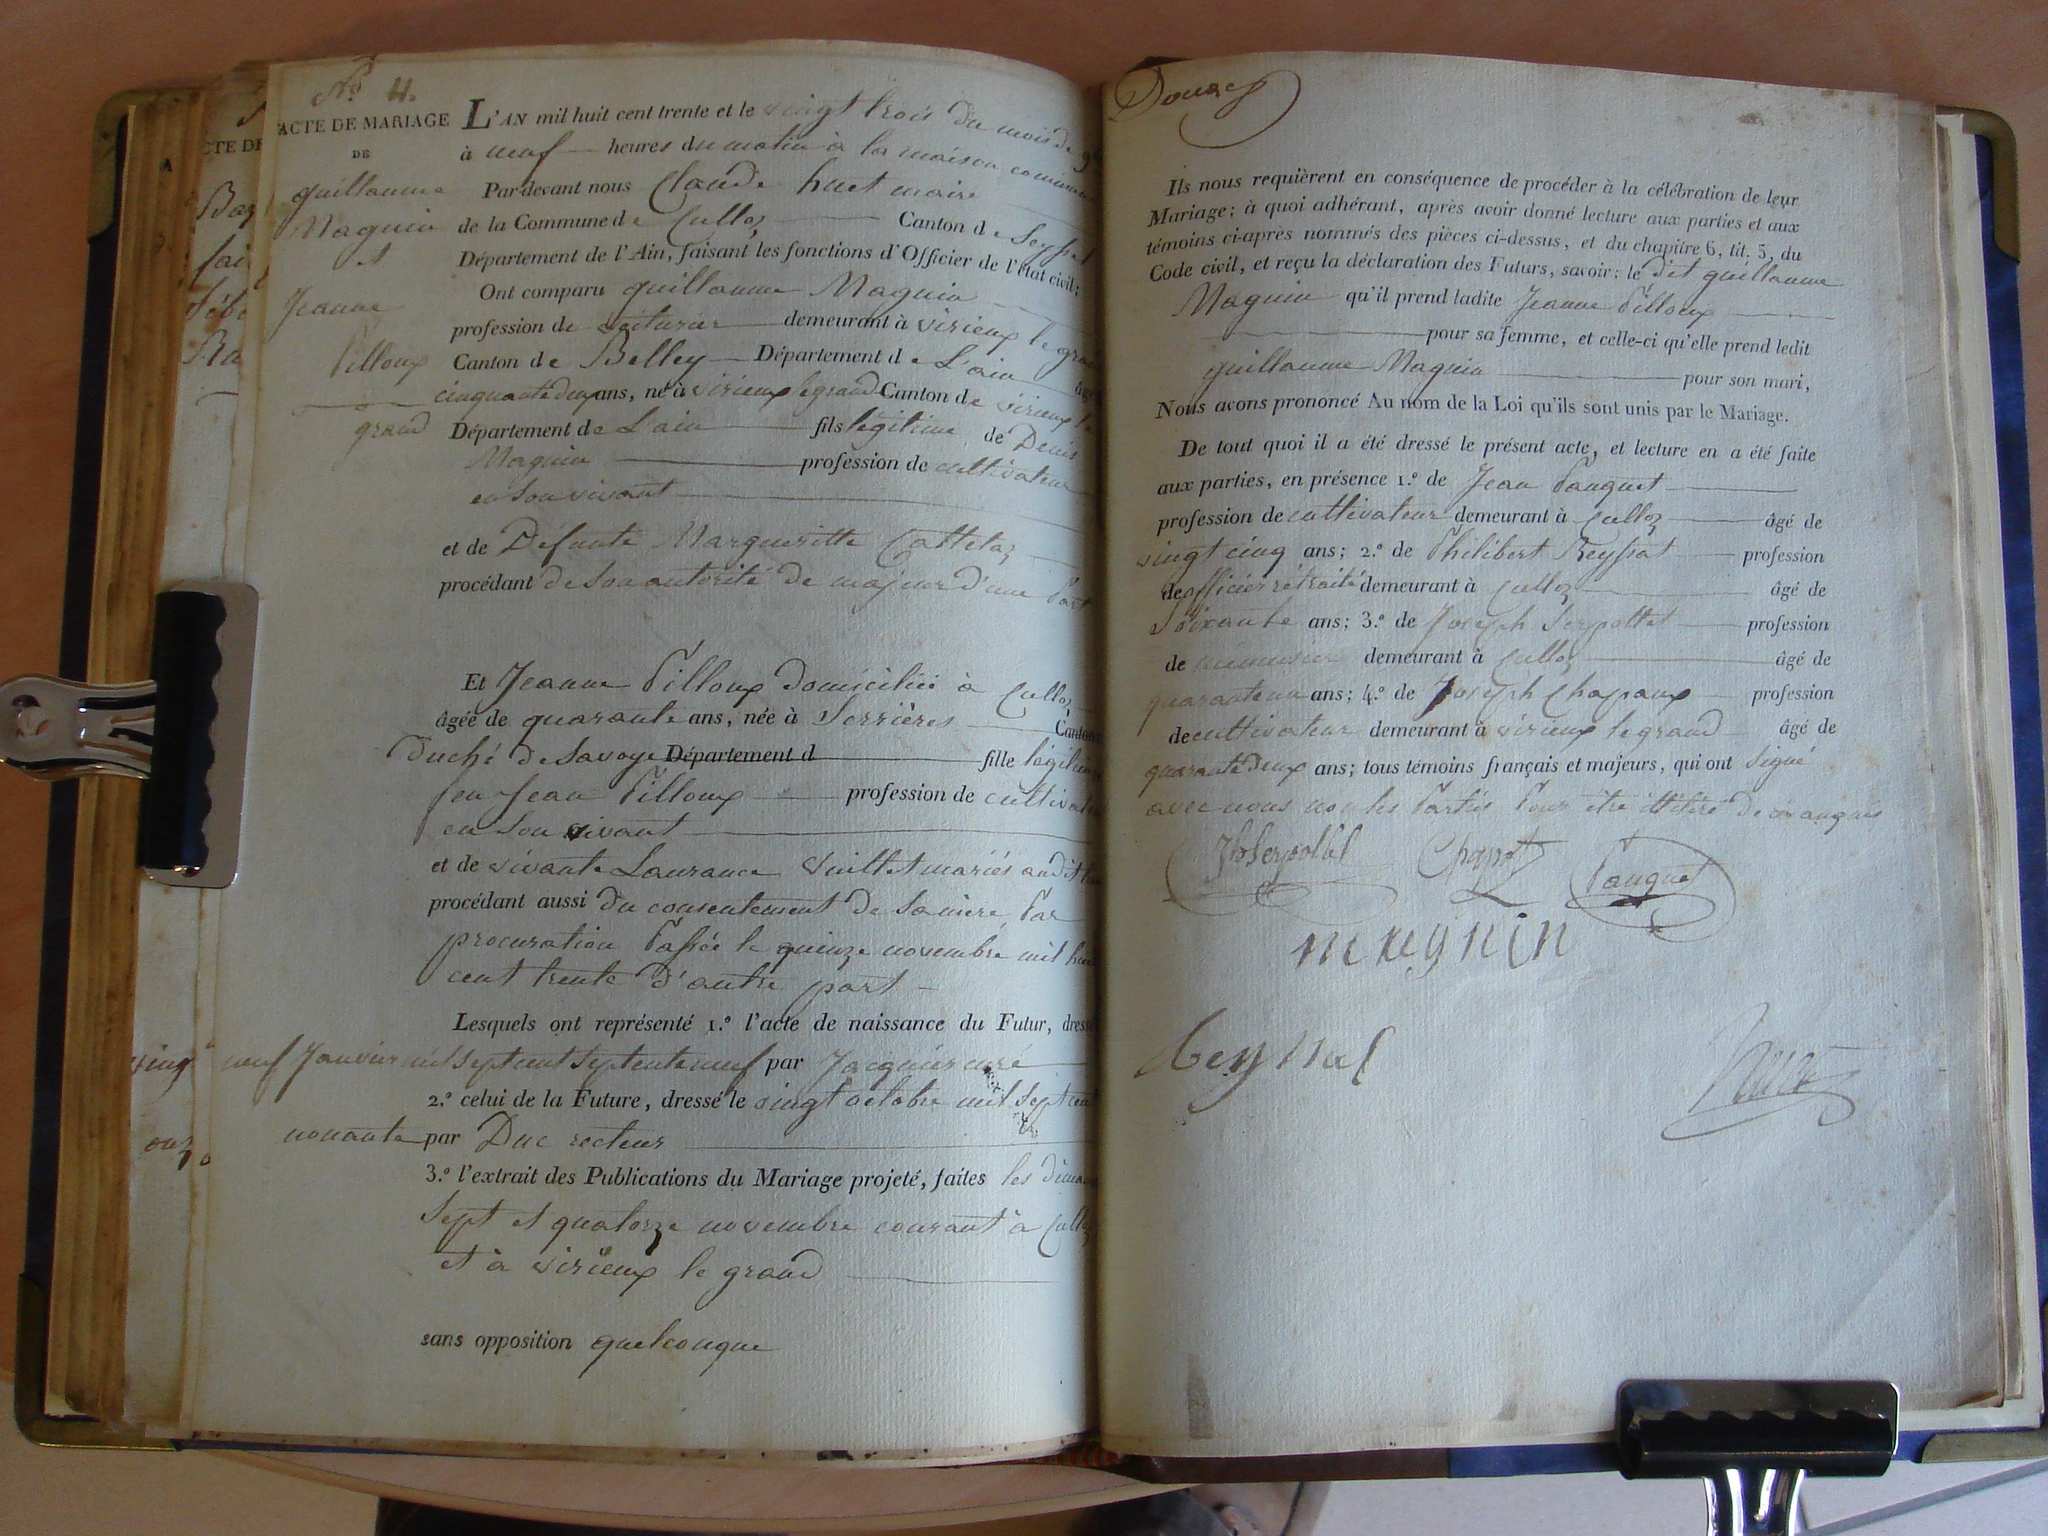 No 11.
ACTE DE MARIAGE
DE
guillaume
Maguin
et
Jeanne
Pilloux
L'AN mil huit cent trente et le vingt trois du mois de
à neuf heures du matin à la maison commune
Par-devant nous Claude huet maire
de la Commune de Culloz Canton de Seyssel
Département de l'Ain, faisant les fonctions d'Officier de l'état civil;
Ont comparu guillaume Maguin
profession de voiturier demeurant à virieux le grand
Canton de Belley Département de L'ain âgé
cinquante deux ans, né à virieux le grand Canton de virieux le
grand Département de L'ain fils légitime de Denis
Maguin profession de cultivateur
en son vivant
et de Défunte Margueritte Cattelaz
procédant de son autorité de majeur d'une Part
Et Jeanne Pilloux domiciliée à Culloz
âgée de quarante ans, née à Serrières Canton
Duché de Savoye Département d fille légitime
feu Jean Pilloux profession de cultivateur
en son vivant
et de vivante Laurance Vuillet mariés audit
procédant aussi du consentement de sa mère Par
procuration Passée le quinze novembre mil huit
cent trente d'autre part
Lesquels ont représenté 1.º l'acte de naissance du Futur, dressé
vingt neuf Janvier mil sept cent septente neuf par Jacquier curé
2.º celui de la Future, dressé le vingt octobre mil sept cent
nonante par Duc recteur
3.º l'extrait des Publications du Mariage projeté, faites les dimanches
sept et quatorze novembre courant à Culloz
et à virieux le grand
sans opposition quelconque
Douze
Ils nous requièrent en conséquence de procéder à la célébration de leur
Mariage; à quoi adhérant, après avoir donné lecture aux parties et aux
témoins ci-après nommés des pièces ci-dessus, et du chapitre 6, tit. 5, du
Code civil, et reçu la déclaration des Futurs, savoir: le dit guillaume
Maguin qu'il prend ladite Jeanne Pilloux
pour sa femme, et celle-ci qu'elle prend ledit
guillaume Maguin pour son mari,
Nous avons prononcé Au nom de la Loi qu'ils sont unis par le Mariage.
De tout quoi il a été dressé le présent acte, et lecture en a été faite
aux parties, en présence 1.º de Jean Pauguet
profession de cultivateur demeurant à Culloz âgé de
vingt cinq ans; 2.º de Philibert Reyssat profession
de officier rétraité demeurant à Culloz âgé de
Soixante ans; 3.º de Joseph Serpollet profession
de menuisier demeurant à Culloz âgé de
quarante un ans; 4.º de Joseph Chapaux profession
de cultivateur demeurant à virieux le grand âgé de
quarante deux ans; tous témoins français et majeurs, qui ont signé
avec nous non les Parties Pour être
Pauguet
magnin
huet